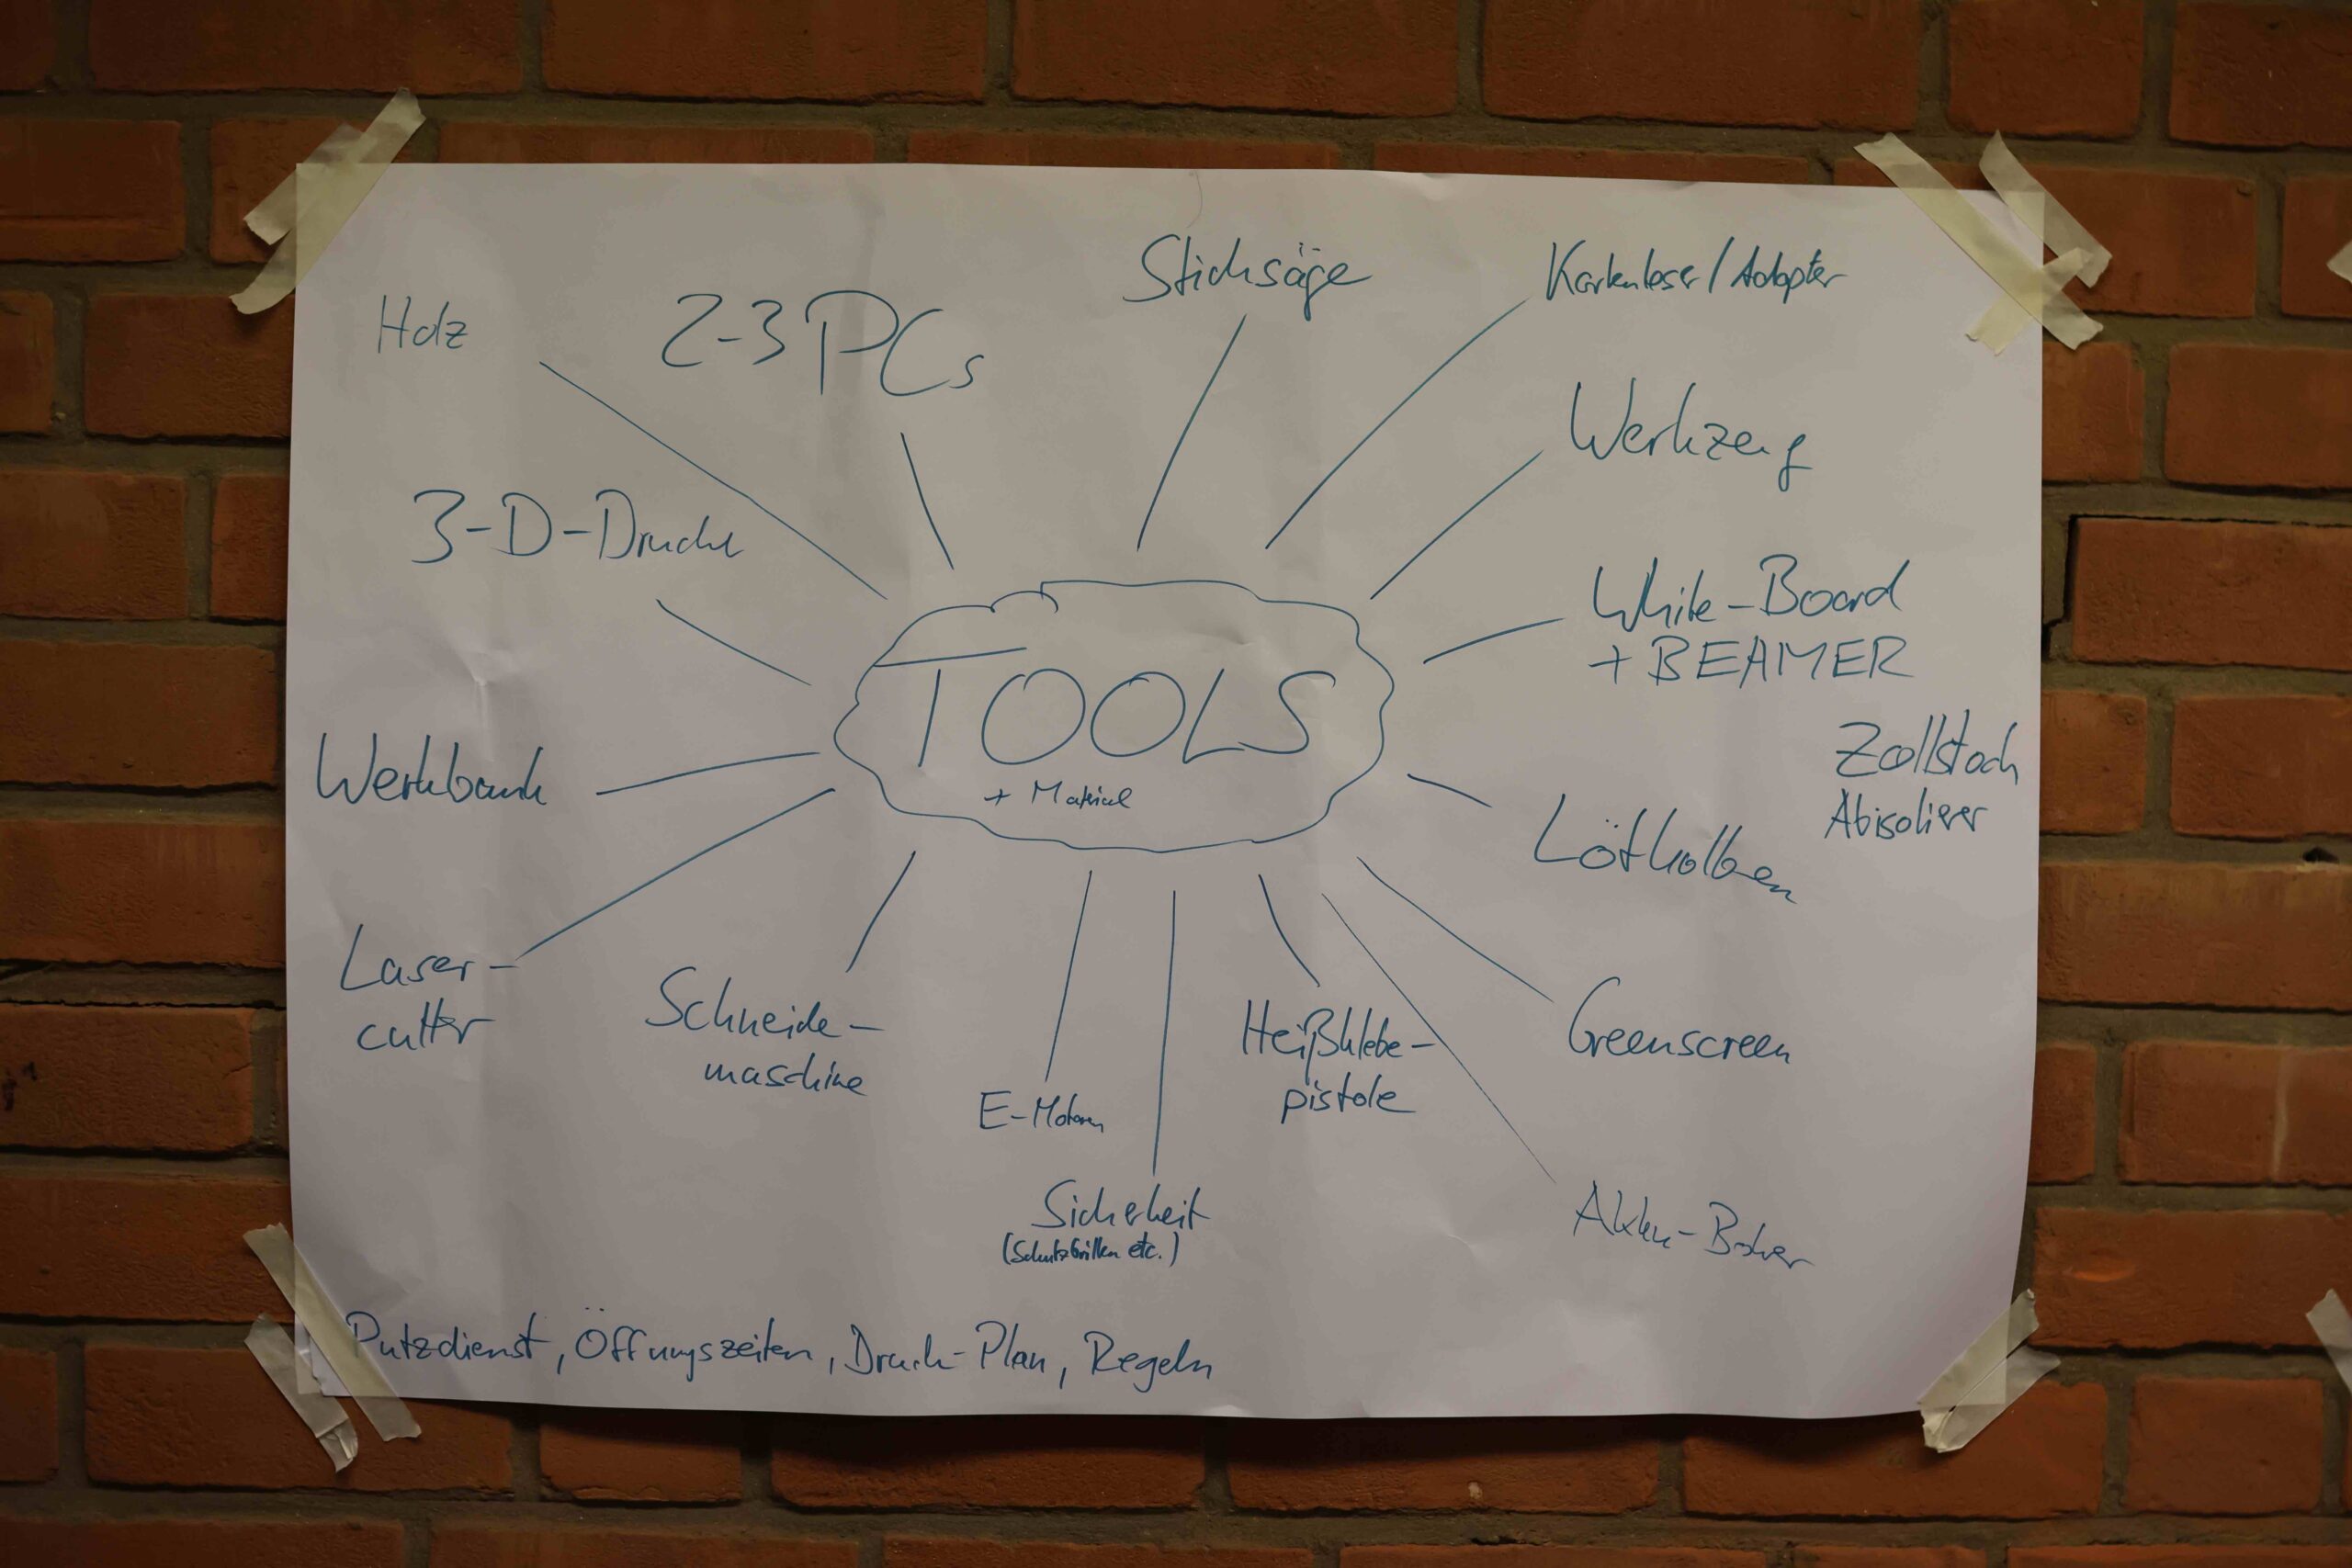 Holz
2-3 PCs
Stichsäge
Kartenleser/Adapter
Werkzeug
3-D-Drucker
White-Board
+ BEAMER
TOOLS
+ Material
Zollstock
Abisolierer
Werkbank
Lötkolben
Laser-
cutter
Schneide-
maschine
E-Motoren
Heißklebe-
pistole
Greenscreen
Sicherheit
(Schutzbrillen etc.)
Akku-Bohrer
Putzdienst, Öffnungszeiten, Druck-Plan, Regeln